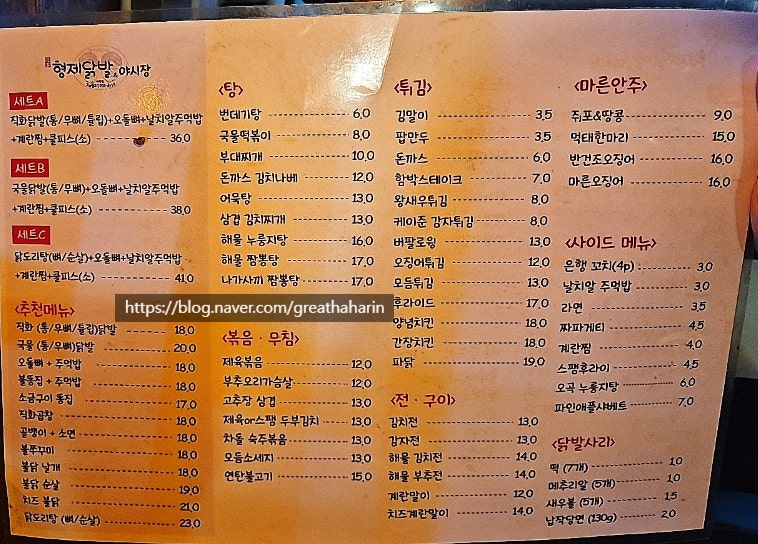 형제닭발&야시장
세트A
직화닭발(통/우뼈/틀립)+오돌뼈+날치알주먹밥
+계란찜+쿨피스(소) 36,0
세트B
국물닭발(통/무뼈)+오돌뼈+날치알주먹밥
+계란찜+쿨피스(소) 38,0
세트C
닭도리탕(뼈/순살)+오돌뼈+날치알주먹밥
+계란찜+쿨피스(소) 41,0
<추천메뉴>
직화 (통/우뼈/틀립)닭발 18,0
국물 (통/우뼈)닭발 20,0
오돌뼈 + 주먹밥 18,0
불똥집 + 주먹밥 18,0
소금구이 똥집 17,0
직화곱창 18,0
골뱅이 + 소면 18,0
불쭈꾸미 18,0
불닭 날개 18,0
불닭 순살 19,0
치즈 불닭 21,0
닭도리탕 (뼈/순살) 23,0
<탕>
번데기탕 6,0
국물떡볶이 8,0
부대찌개 10,0
돈까스 김치나베 12,0
어묵탕 13,0
삼겹 김치찌개 13,0
해물 누룽지탕 16,0
해물 짬뽕탕 17,0
나가사끼 짬뽕탕 17,0
<볶음 · 무침>
제육볶음 12,0
부추오리가슴살 12,0
고추장 삼겹 13,0
제육or스팸 두부김치 13,0
차돌 숙주볶음 13,0
모듬소세지 13,0
연탄불고기 15,0
<튀김>
김말이 3,5
팝만두 3,5
돈까스 6,0
함박스테이크 7,0
왕새우튀김 8,0
케이준 감자튀김 8,0
버팔로윙 13,0
오징어튀김 12,0
모듬튀김 13,0
후라이드 17,0
양념치킨 18,0
간장치킨 18,0
파닭 19,0
<전 · 구이>
김치전 13,0
감자전 13,0
해물 김치전 14,0
해물 부추전 14,0
계란말이 12,0
치즈계란말이 14,0
<마른안주>
쥐포&땅콩 9,0
먹태한마리 15,0
반건조오징어 16,0
마른오징어 16,0
<사이드 메뉴>
은행 꼬치(4p) 3,0
날치알 주먹밥 3,0
라면 3,5
짜파게티 4,5
계란찜 4,0
스팸후라이 4,5
오곡 누룽지탕 6,0
파인애플샤베트 7,0
<닭발사리>
떡 (7개) 1,0
메추리알 (5개) 1,0
새우볼 (5개) 1,5
납작당면 (130g) 2,0
https://blog.naver.com/greathaharin